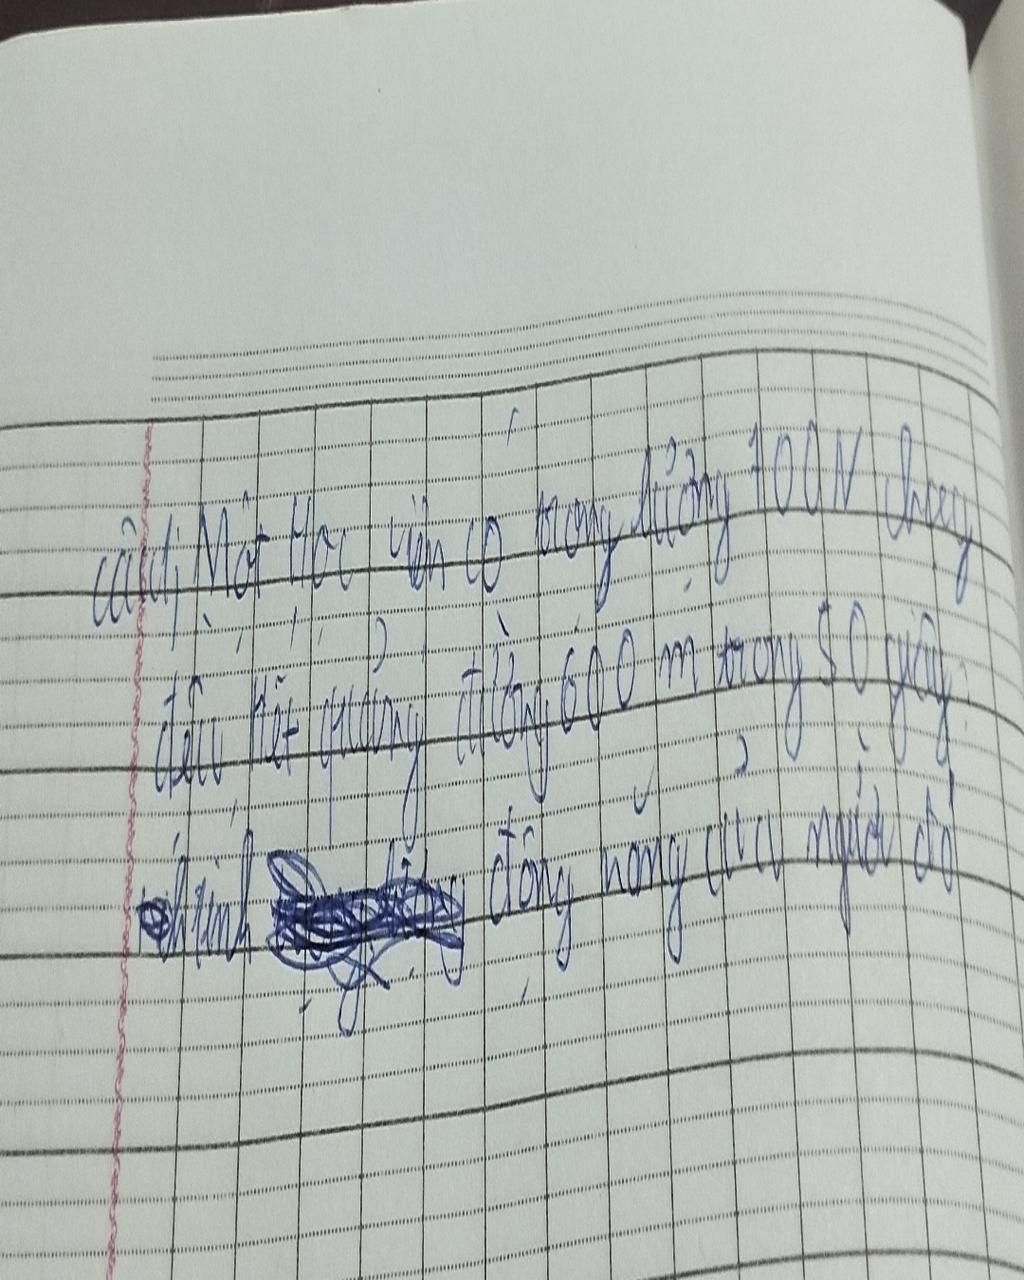 câu1; Một Học viên có trong lượng 100N chạy
đều hết quảng đường 600 m trong 50 giây.
tính động năng của người đó